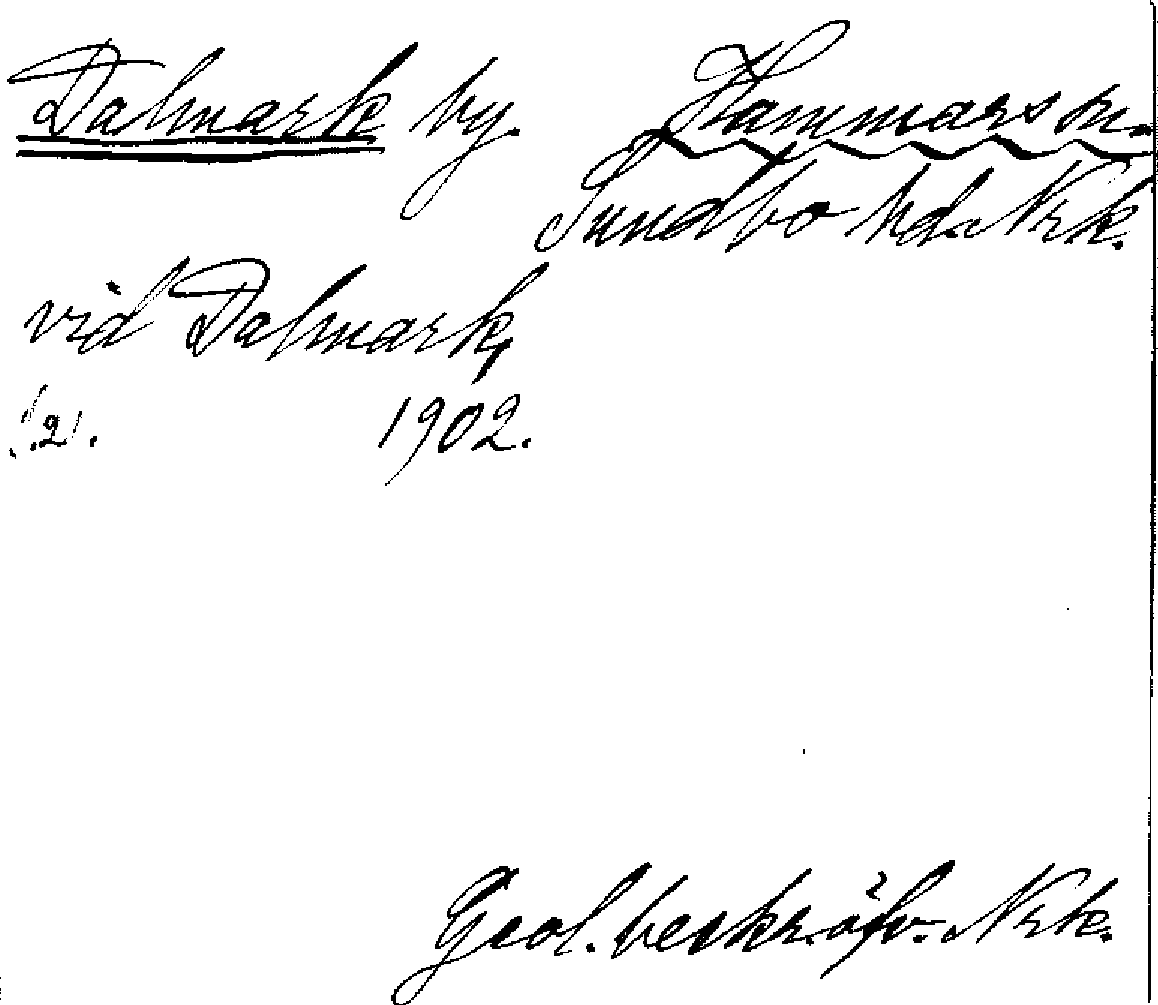 Dalmark by. Hammars sn.
Sundbo hd. Nrk.
vid Dalmark,
1902.
Geol. beskr. öfv. Nrk.